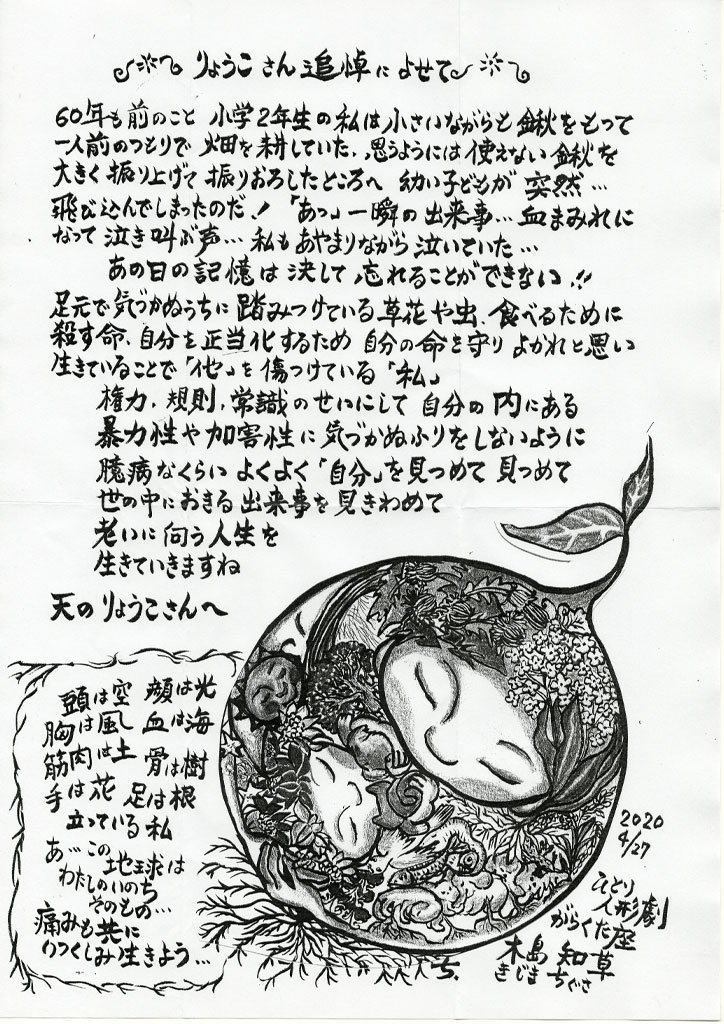 りょうこさん追悼によせて
60年も前のこと 小学2年生の私は小さいながらも鍬をもって
一人前のつもりで 畑を耕していた、思うようには使えない鍬を
大きく振り上げて 振りおろしたところへ 幼い子どもが 突然…
飛び込んでしまったのだ!「あっ」一瞬の出来事…血まみれに
なって泣き叫ぶ声…私もあやまりながら泣いていた…
あの日の記憶は決して忘れることができない!!
足元で気づかぬうちに踏みつけている草花や虫、食べるために
殺す命、自分を正当化するため 自分の命を守り よかれと思い
生きていることで「他」を傷つけている「私」
権力、規則、常識のせいにして 自分の内にある
暴力性や加害性に気づかぬふりをしないように
臆病なくらい よくよく「自分」を見つめて 見つめて
世の中におきる出来事を見きわめて
老いに向う人生を
生きていきますね
天のりょうこさんへ
頭は空 顔は光
胸は風 血は海
筋肉は土 骨は樹
手は花 足は根
立っている私
あ…この
地球は
わたしのいのち
そのもの…
痛みも共に
いつくしみ生きよう…
2020
4/27
ひとり
人形劇
がらくた座
木島 知草
きじま ちぐさ
ち.